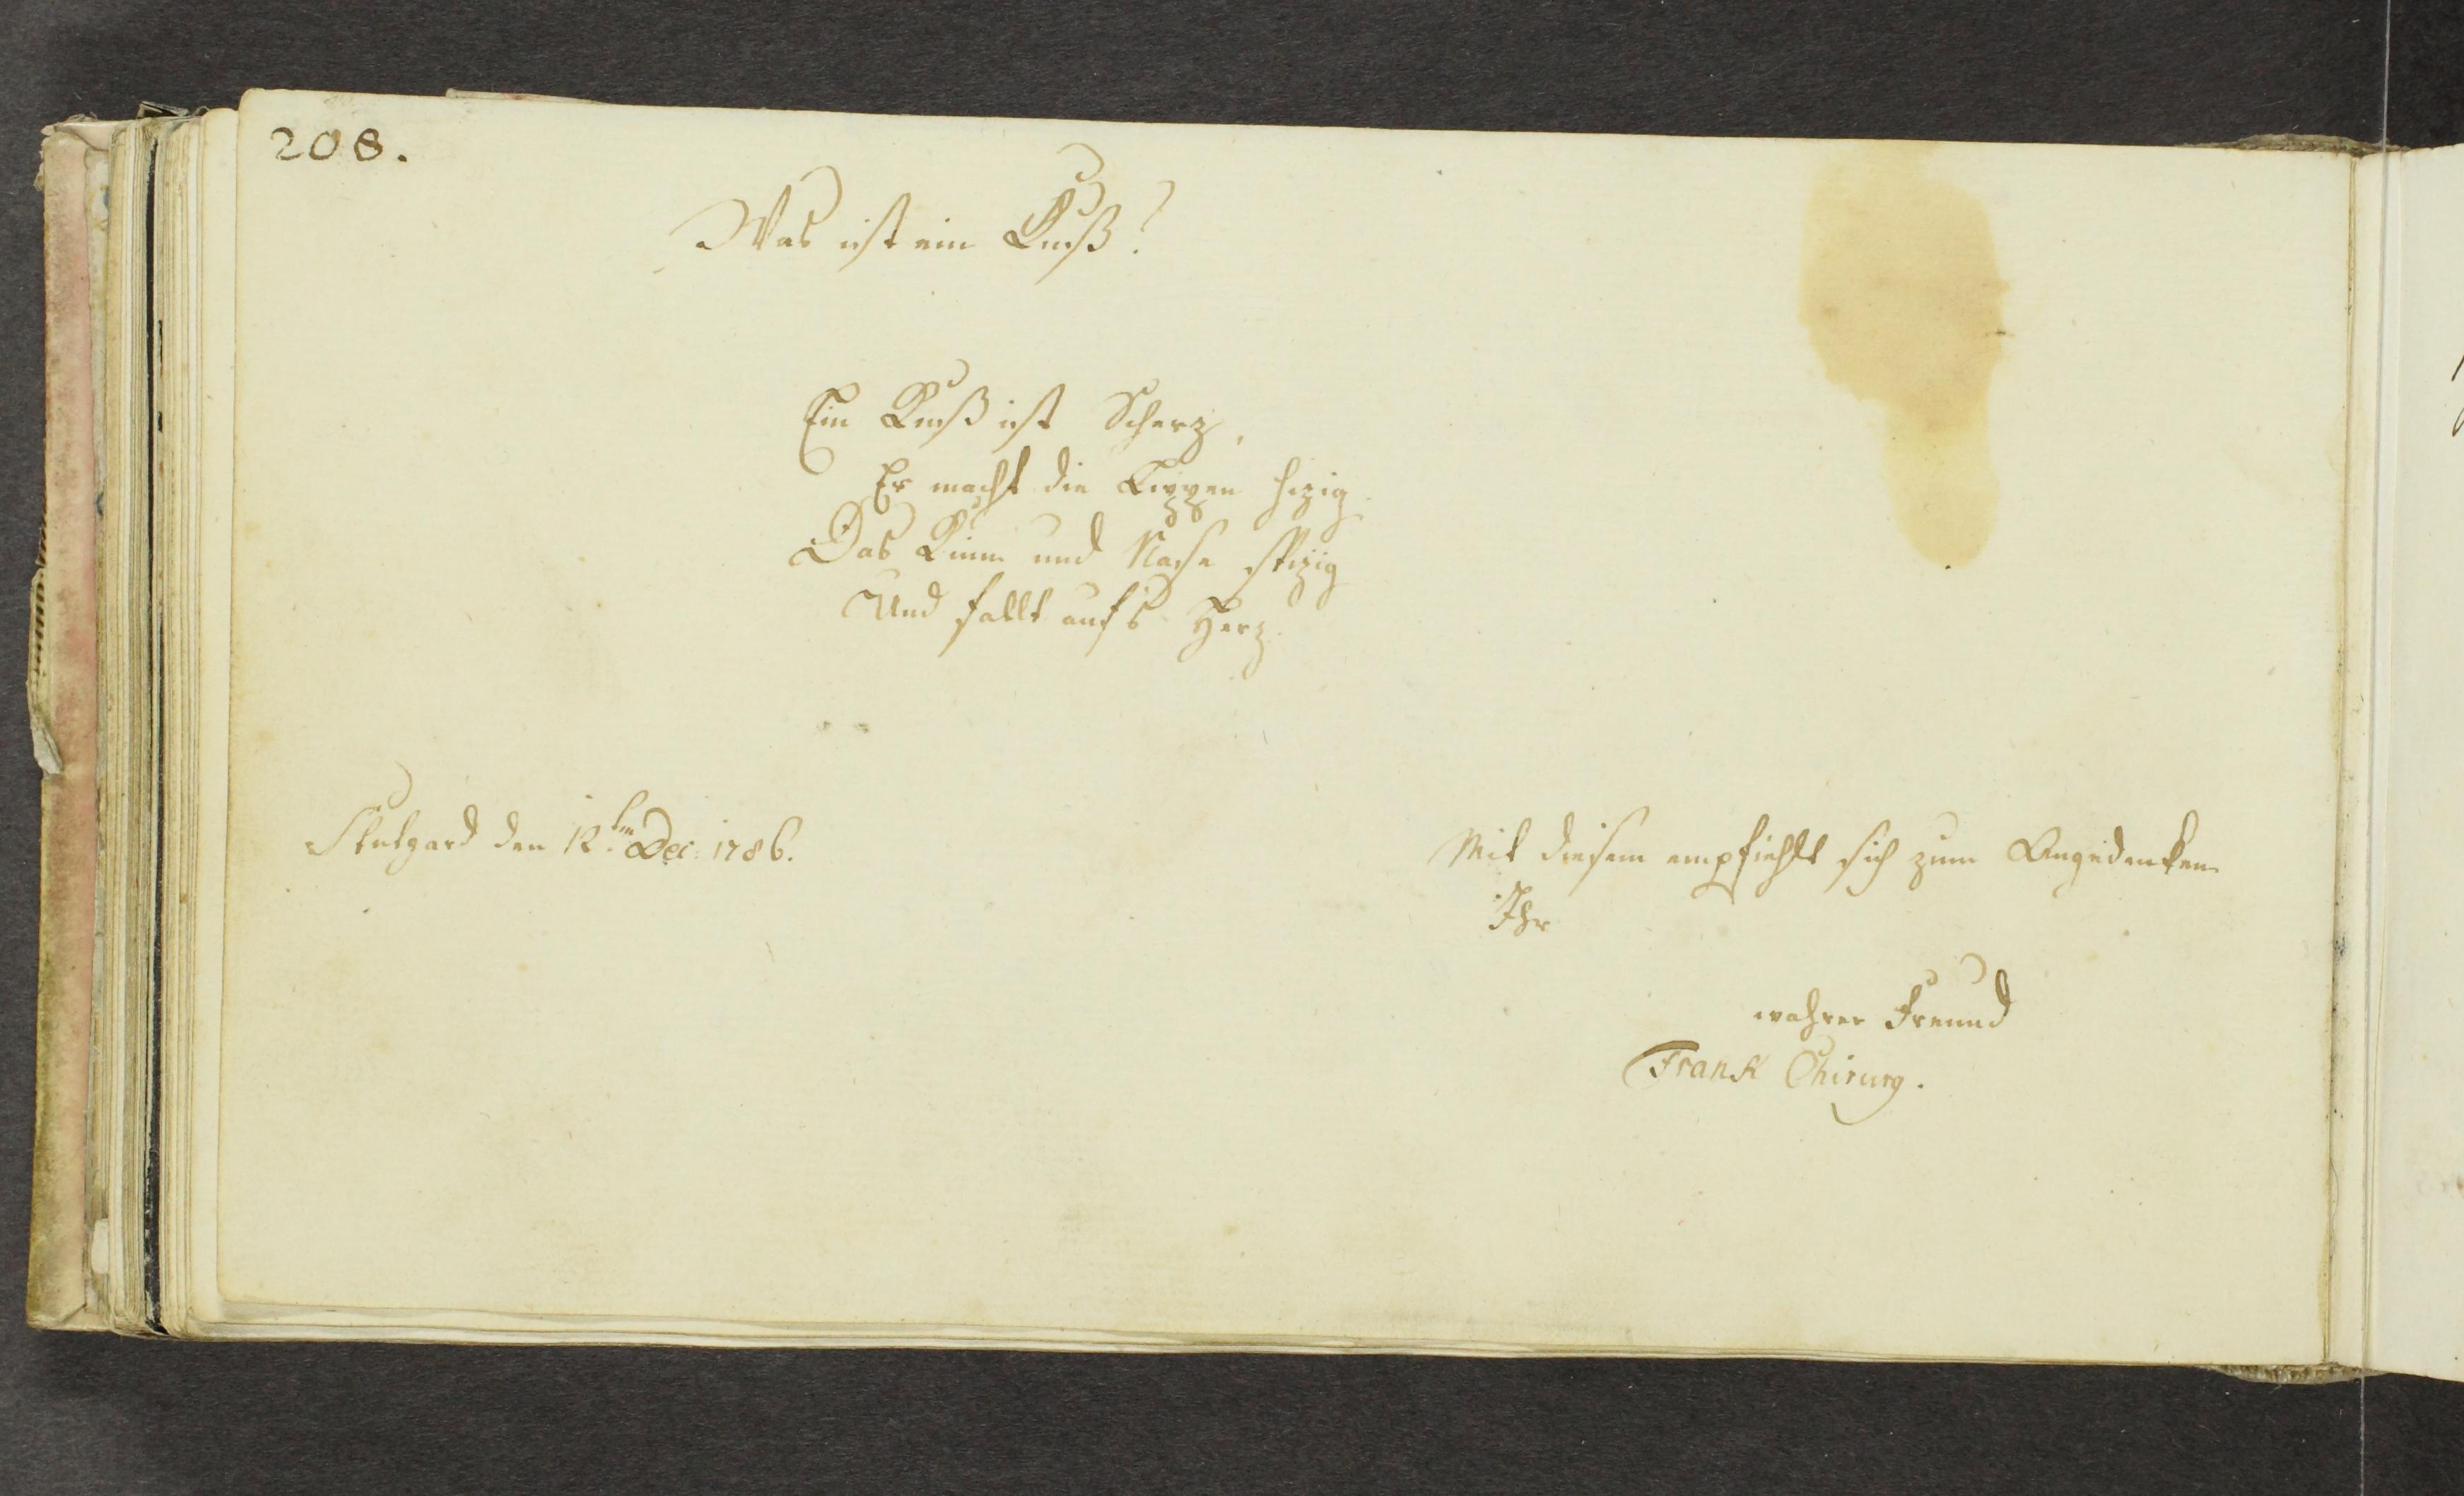 208.
Was ist ein Kuß?
Ein Kuß ist Scherz,
Er macht die Lippen hizig
Das Kinn und Nase spizig
Und fällt auf's Herz.
Stutgard den 12.ten Dec: 1786.
Mit diesem empfiehlt sich zum Angedenken
Ihr
wahrer Freund
Frank Chirurg.